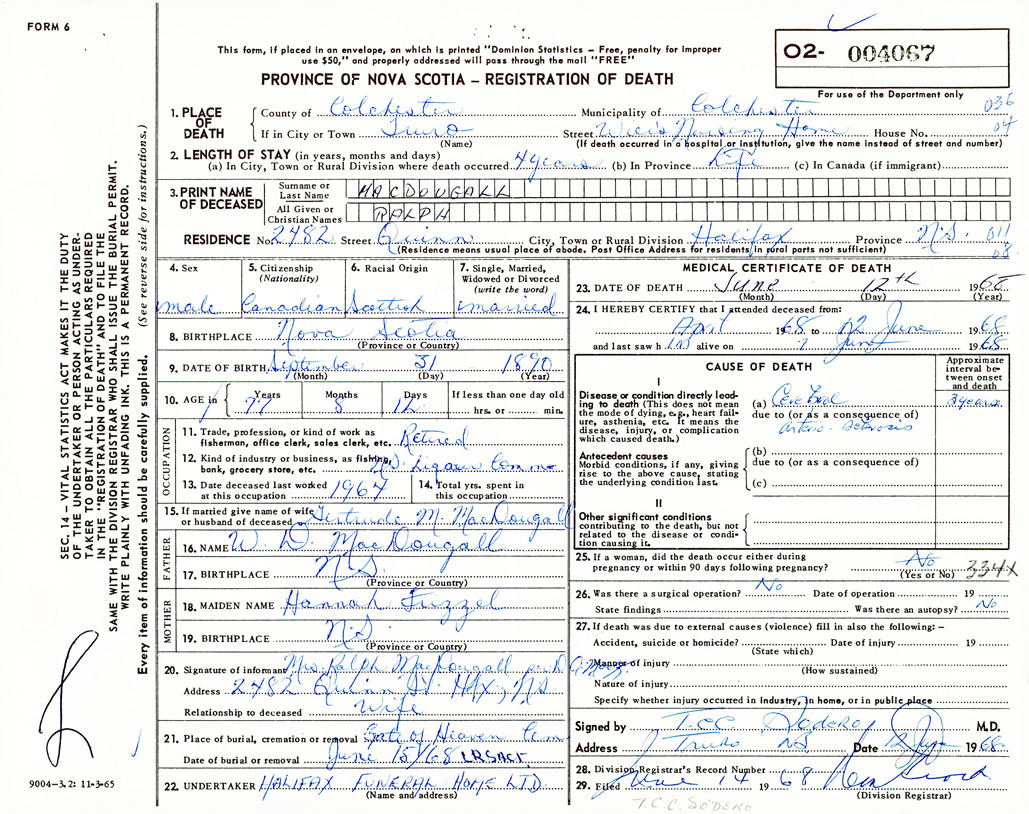 FORM 6
This form, if placed in an envelope, on which is printed "Dominion Statistics – Free, penalty for improper
use $50," and properly addressed will pass through the mail "FREE"
PROVINCE OF NOVA SCOTIA – REGISTRATION OF DEATH
02- 004067
For use of the Department only
1. PLACE OF DEATH County of Colchester Municipality of Colchester 036
If in City or Town Truro Street Nursing Home House No. 04
(Name) (If death occurred in a hospital or institution, give the name instead of street and number)
2. LENGTH OF STAY (in years, months and days)
(a) In City, Town or Rural Division where death occurred 4 years (b) In Province Life (c) In Canada (if immigrant)
3. PRINT NAME OF DECEASED Surname or Last Name MACDOUGALL
All Given or Christian Names RALPH
RESIDENCE No. 2482 Street Quinn City, Town or Rural Division Halifax Province N.S. 011
(Residence means usual place of abode. Post Office Address for residents in rural parts not sufficient) 08
4. Sex 5. Citizenship (Nationality) 6. Racial Origin 7. Single, Married, Widowed or Divorced (write the word)
male Canadian Scottish married
8. BIRTHPLACE Nova Scotia
(Province or Country)
9. DATE OF BIRTH September 31 1890
(Month) (Day) (Year)
10. AGE in Years Months Days If less than one day old
77 8 12 hrs. or min.
OCCUPATION
11. Trade, profession, or kind of work as
fisherman, office clerk, sales clerk, etc. Retired
12. Kind of industry or business, as fishing,
bank, grocery store, etc. N.S. Liquor Comm
13. Date deceased last worked at this occupation 1964 14. Total yrs. spent in this occupation
15. If married give name of wife
or husband of deceased Gertrude M. MacDougall
FATHER
16. NAME W. D. MacDougall
17. BIRTHPLACE N.S.
(Province or Country)
MOTHER
18. MAIDEN NAME Hannah Frizzel
19. BIRTHPLACE N.S
(Province or Country)
20. Signature of informant Mrs. Ralph MacDougall
Address 2482 Quinn St. Hfx, N.S
Relationship to deceased Wife
21. Place of burial, cremation or removal Gate of Heaven Cem
Date of burial or removal June 15/68
22. UNDERTAKER HALIFAX FUNERAL HOME LTD.
(Name and address)
MEDICAL CERTIFICATE OF DEATH
23. DATE OF DEATH June 12th 1968
(Month) (Day) (Year)
24. I HEREBY CERTIFY that I attended deceased from:
April 1968 to 12 June 1968
and last saw him alive on June 1968
CAUSE OF DEATH
Approximate interval between onset and death
I
Disease or condition directly leading to death (This does not mean the mode of dying, e.g., heart failure, asthenia, etc. It means the disease, injury, or complication which caused death.)
(a) Cerebral 3 years
due to (or as a consequence of)
Arterio-Sclerosis
Antecedent causes
Morbid conditions, if any, giving rise to the above cause, stating the underlying condition last.
(b)
due to (or as a consequence of)
(c)
II
Other significant conditions
contributing to the death, but not related to the disease or condition causing it.
25. If a woman, did the death occur either during
pregnancy or within 90 days following pregnancy? No 334X
(Yes or No)
26. Was there a surgical operation? No Date of operation 19
State findings Was there an autopsy? No
27. If death was due to external causes (violence) fill in also the following: –
Accident, suicide or homicide? Date of injury 19
(State which)
Manner of injury
(How sustained)
Nature of injury
Specify whether injury occurred in industry, in home, or in public place
Signed by T.C.C. Sodero M.D.
Address Truro NS Date 12 June 1968
28. Division Registrar's Record Number
29. Filed June 14 1968
(Division Registrar)
T.C.C. SODERO
SEC. 14 – VITAL STATISTICS ACT MAKES IT THE DUTY
OF THE UNDERTAKER OR PERSON ACTING AS UNDER-
TAKER TO OBTAIN ALL THE PARTICULARS REQUIRED
IN THE "REGISTRATION OF DEATH" AND TO FILE THE
SAME WITH THE DIVISION REGISTRAR WHO SHALL ISSUE THE BURIAL PERMIT.
WRITE PLAINLY WITH UNFADING INK. THIS IS A PERMANENT RECORD.
Every item of information should be carefully supplied. (See reverse side for instructions.)
9004-3.2: 11-3-65